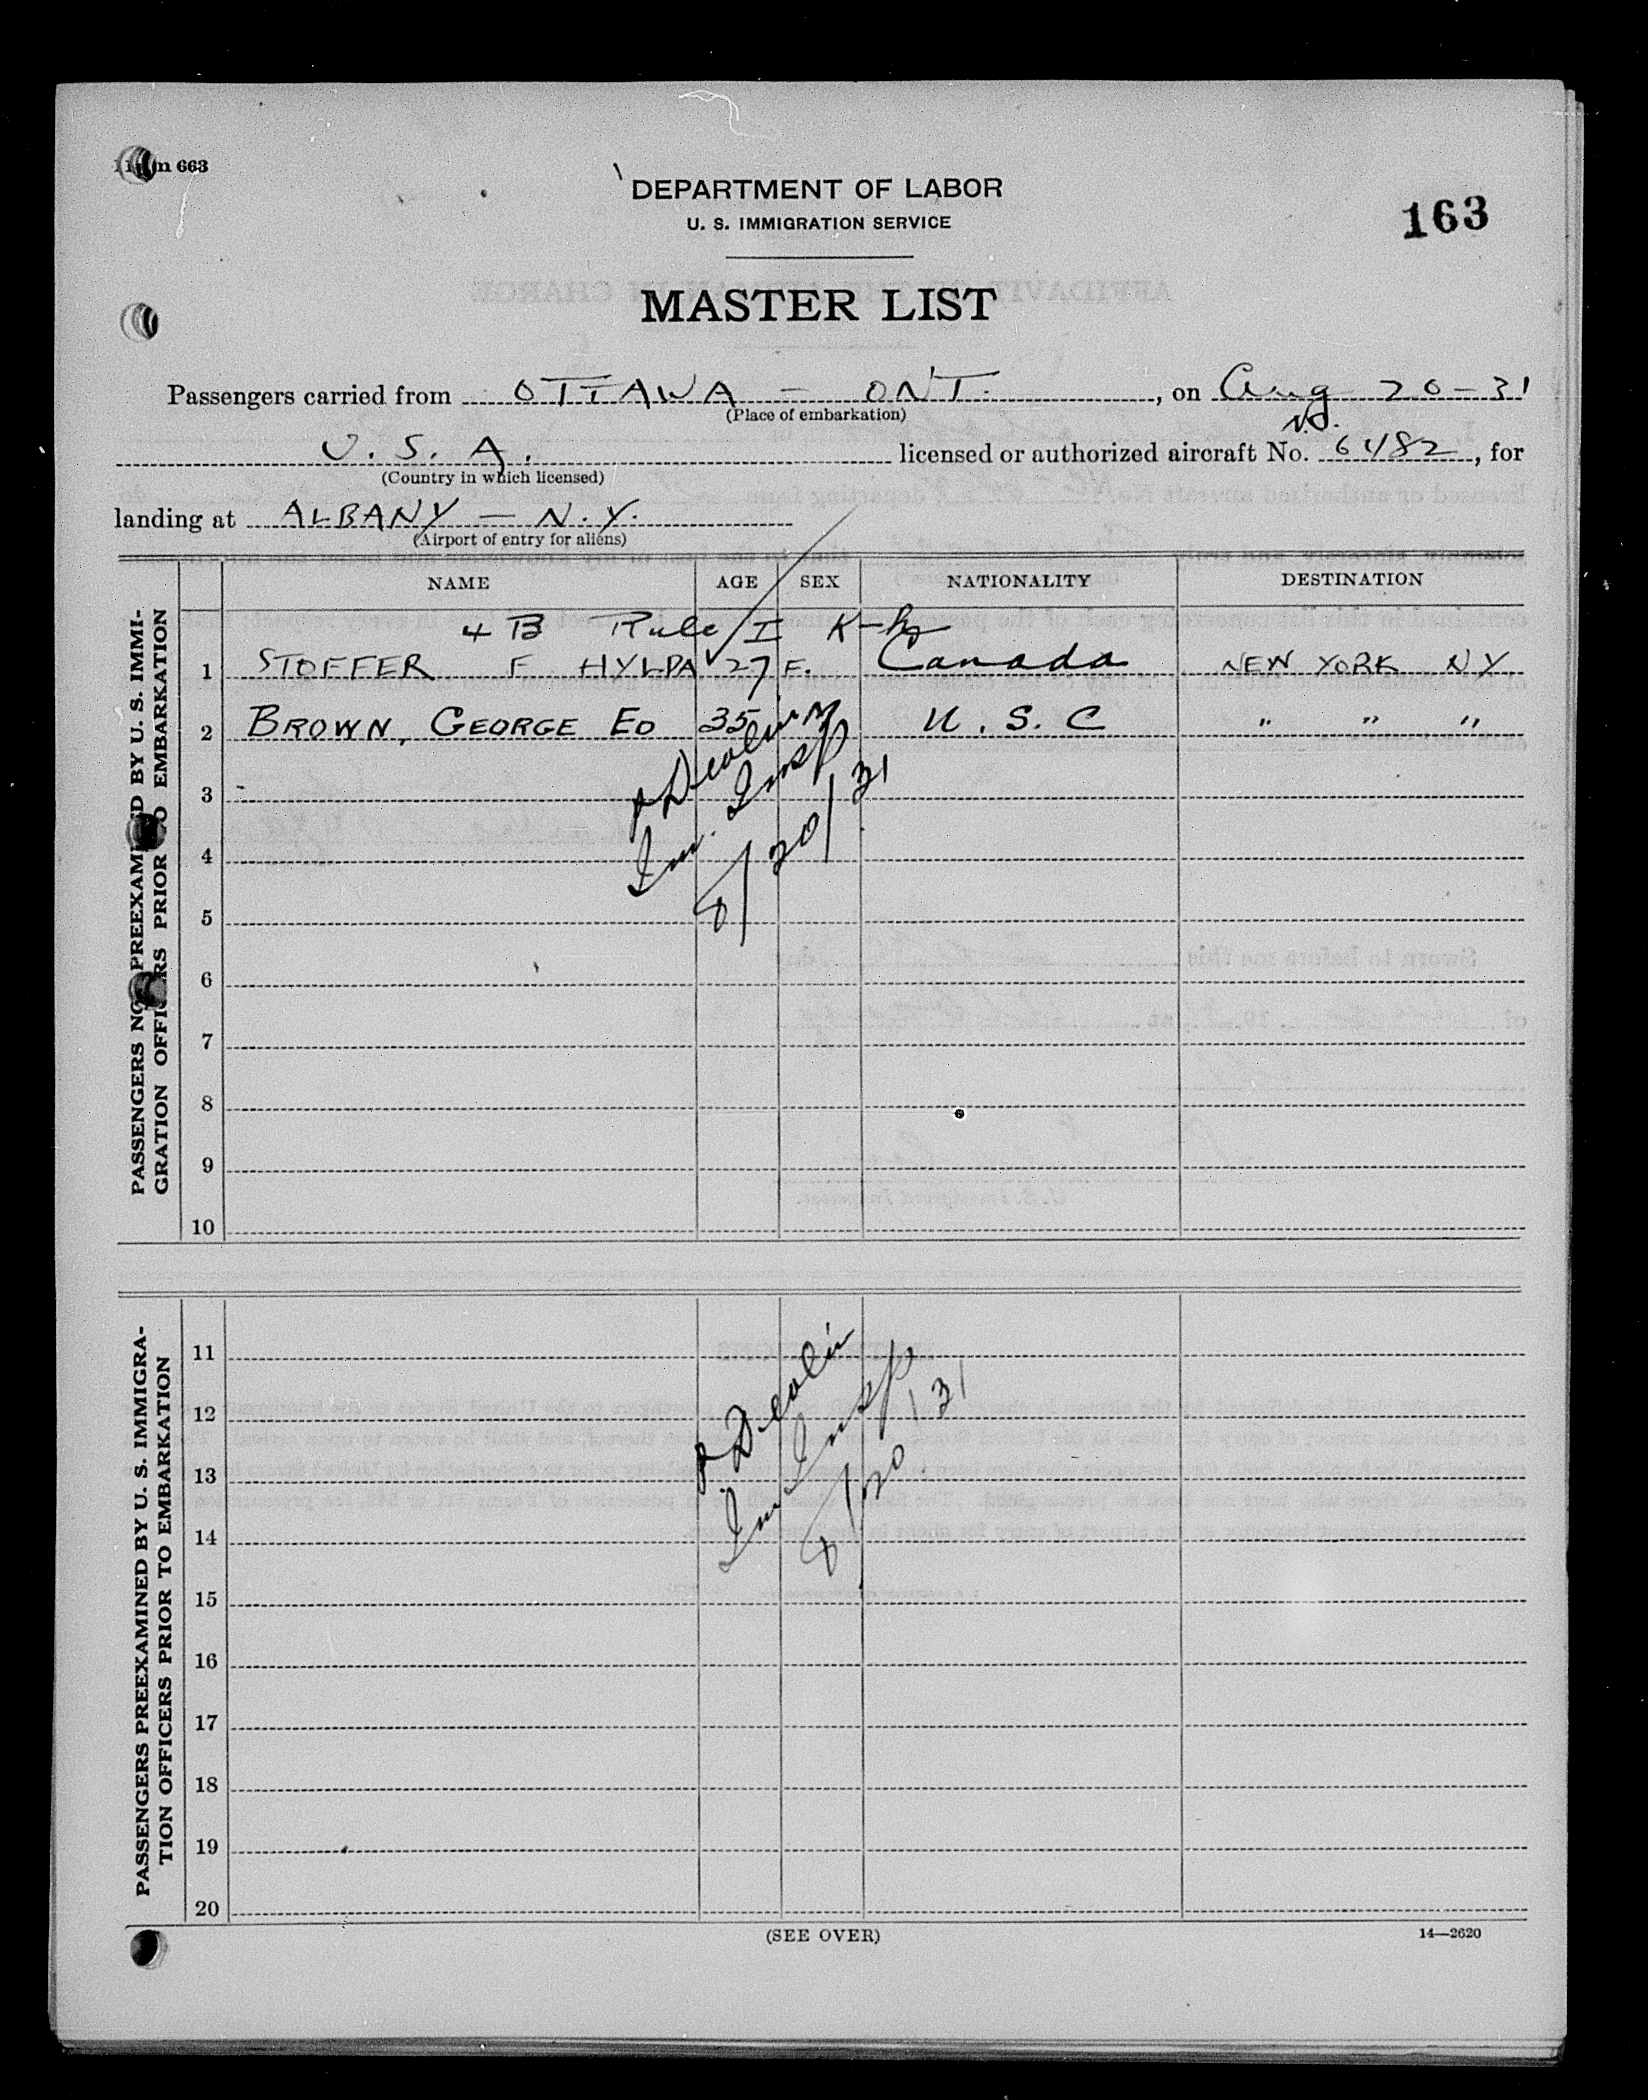 Form 663
DEPARTMENT OF LABOR
U. S. IMMIGRATION SERVICE
163
MASTER LIST
Passengers carried from OTTAWA – ONT. , on Aug 20–31
(Place of embarkation)
U. S. A. licensed or authorized aircraft No. 6482, for
(Country in which licensed)
landing at ALBANY – N.Y.
(Airport of entry for aliens)
NAME AGE SEX NATIONALITY DESTINATION
4 B Rule I
1 STOFFER F HYLDA 27 F. Canada NEW YORK NY
2 BROWN, GEORGE ED 35 M U. S. C " " "
3
4
5
6
7
8
9
10
Devlin
Im. Insp
8/20/31
PASSENGERS NOT PREEXAMINED BY U. S. IMMI-
GRATION OFFICERS PRIOR TO EMBARKATION
11
12
13
14
15
16
17
18
19
20
Devlin
Im Insp
8/20/31
PASSENGERS PREEXAMINED BY U. S. IMMIGRA-
TION OFFICERS PRIOR TO EMBARKATION
(SEE OVER)
14—2620